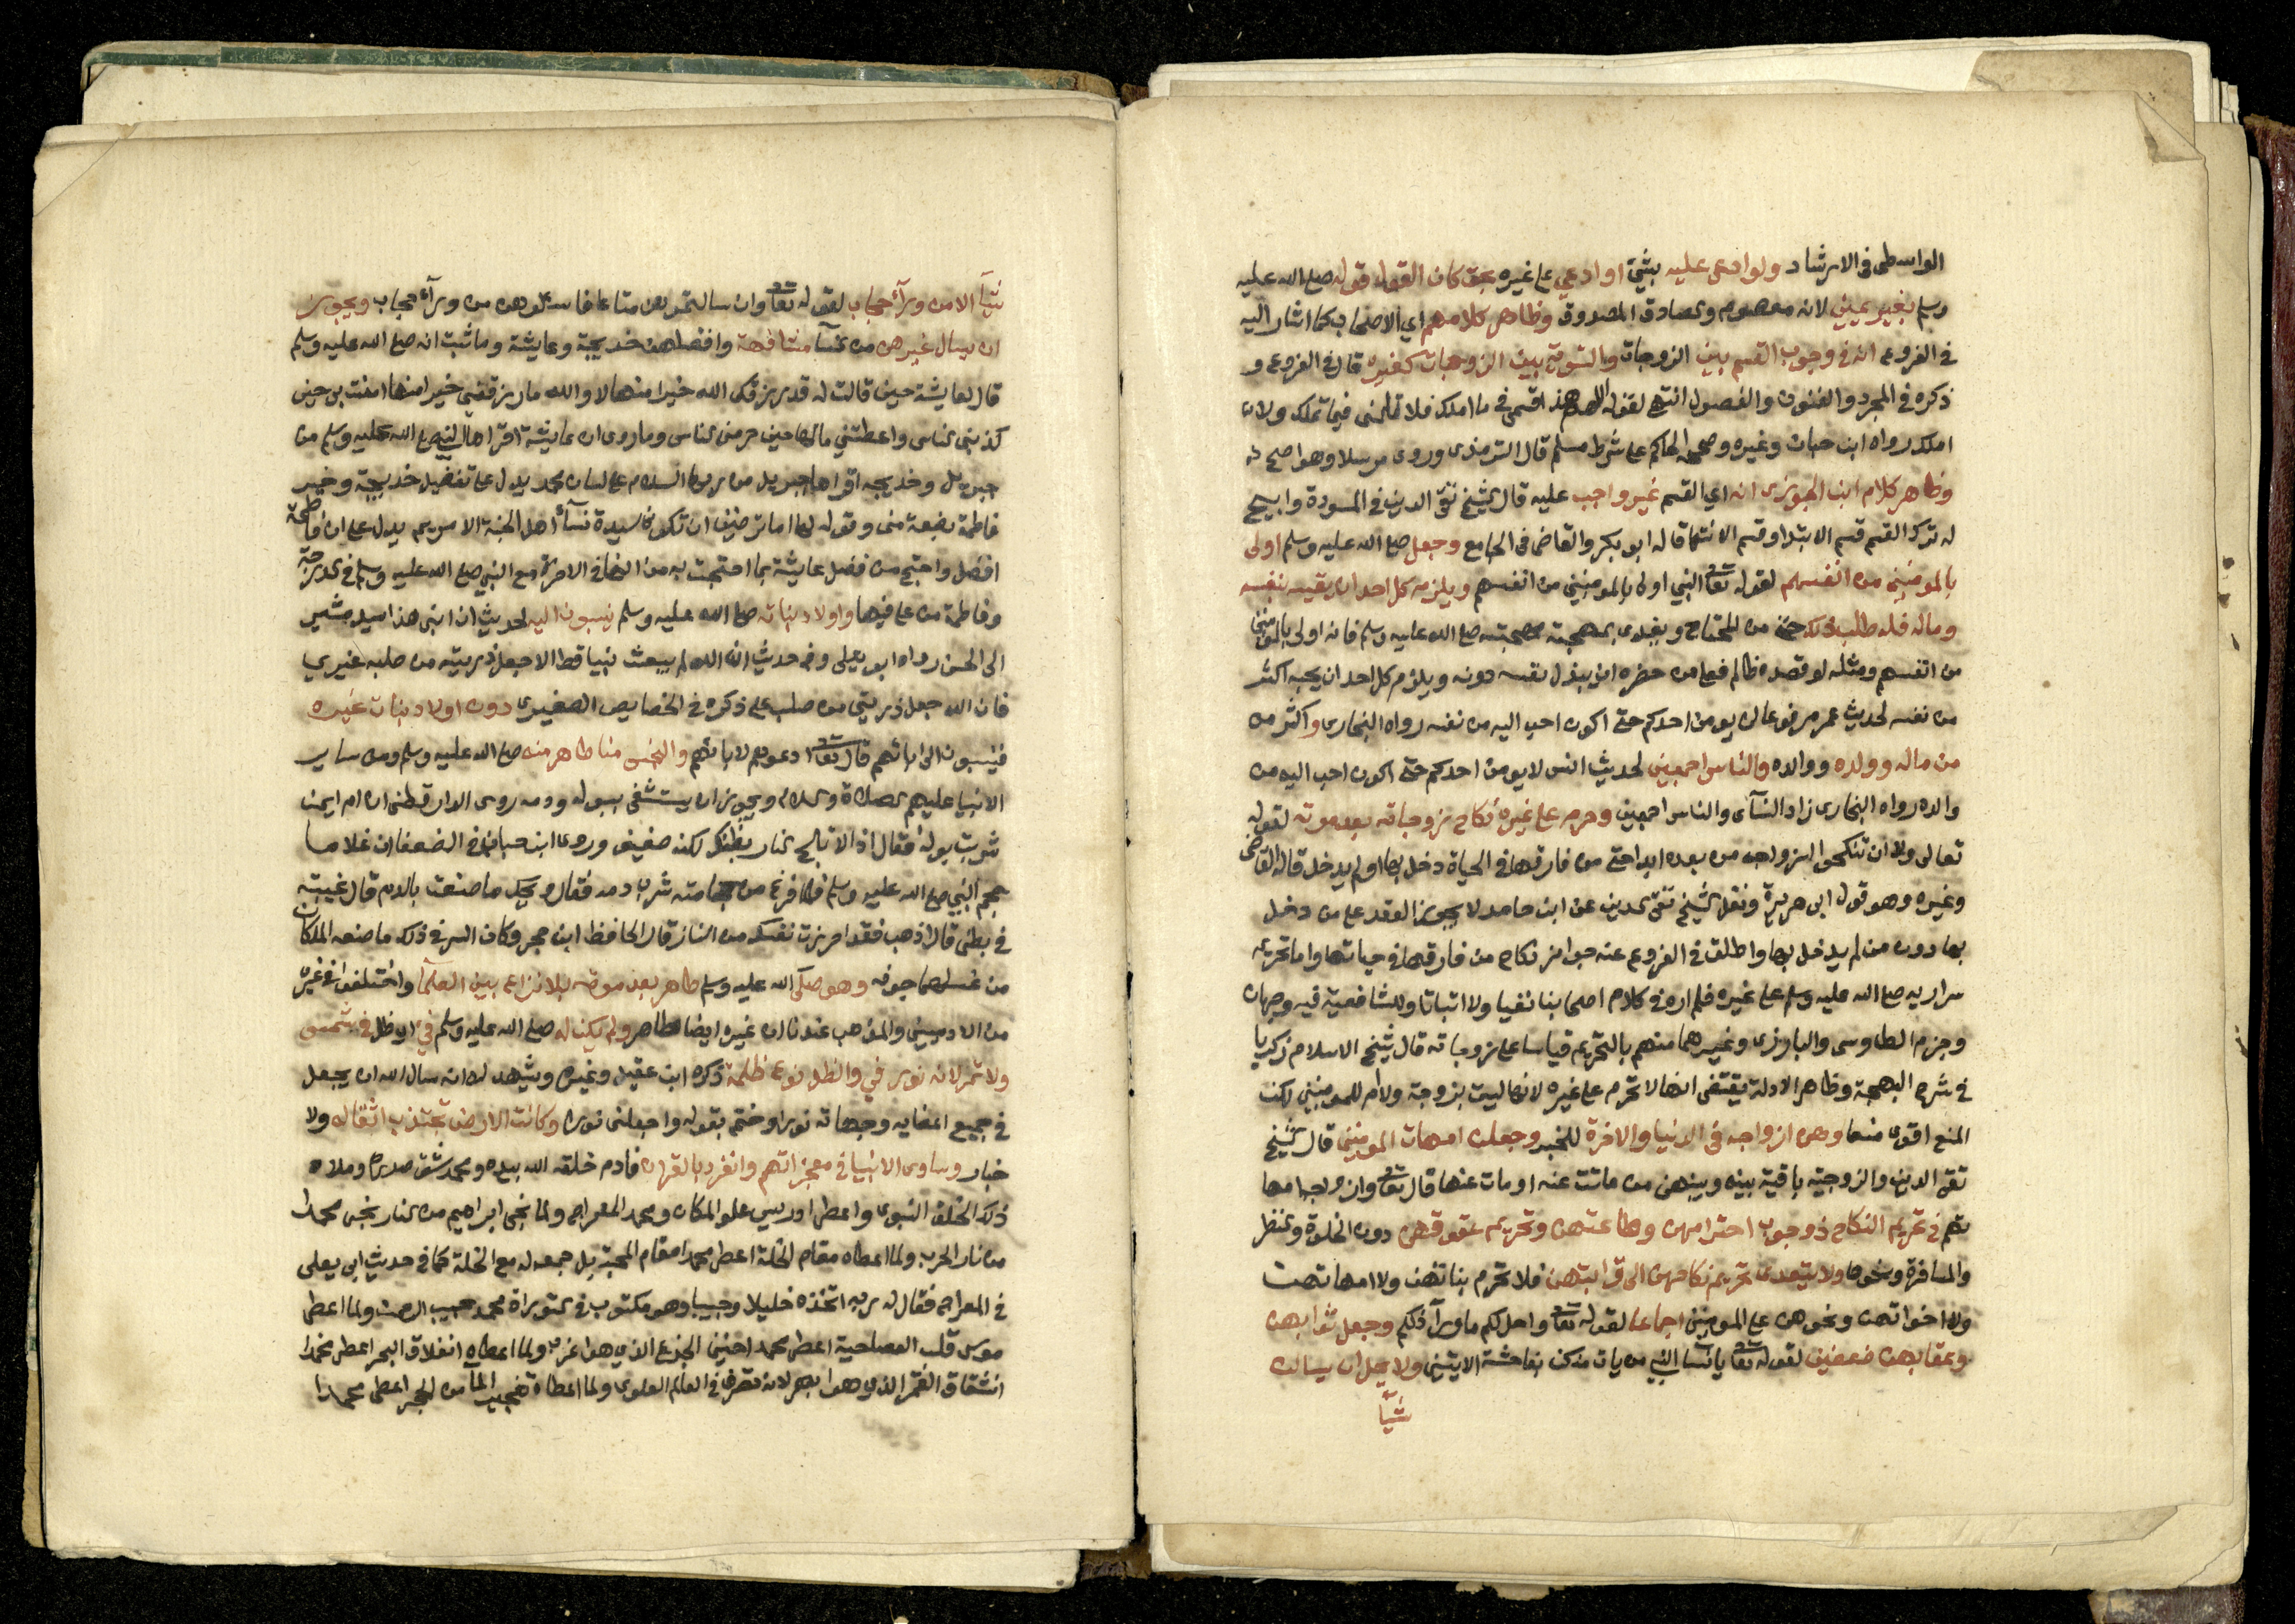 الواسطى فى الارشاد ولو ادعى عليه بشئ او ادعي على غيره بحق كان القول قوله صلى الله عليه
وسلم بغير يمين لانه معصوم والصادق المصدوق وظاهر كلامهم اي الاصحاب كما اشار اليه
فى الفروع انه فى وجوب القسم بين الزوجات والتسوية بين الزوجات كغيره قال فى الفروع و
ذكره فى المجرد والفنون والفصول انتهى لقوله اللهم هذا قسمى فى ما املك فلا تلمنى فيما تملك ولا
املك رواه ابن حبان وغيره وصححه الحاكم على شرط مسلم قال الترمذى وروى مرسلا وهو اصح
وظاهر كلام ابن الجوزى انه اي القسم غير واجب عليه قال الشيخ تقى الدين فى المسودة وابيح
له ترك القسم قسم الابتدا وقسم الانتها قاله ابو بكر والقاضى فى الجامع وجعل صلى الله عليه وسلم اولى
بالمومنين من انفسهم لقوله تعالى النبي اولى بالمومنين من انفسهم ويلزم كل احد ان يقيه بنفسه
وماله فله طلب ذلك حتى من المحتاج ويفدى بمهجته مهجته صلى الله عليه وسلم فانه اولى بالمومنين
من انفسهم ومثله لو قصده ظالم فعلى من حضره ان يبذل نفسه دونه ويلزم كل احد ان يحبه اكثر
من نفسه لحديث عمر مرفوعا لن يومن احدكم حتى اكون احب اليه من نفسه رواه البخارى واكثر من
من ماله وولده ووالده والناس اجمعين لحديث انس لا يومن احدكم حتى اكون احب اليه من
والده رواه البخارى زاد النسآى والناس اجمعين وحرم على غيره نكاح زوجاته بعد موته لقوله
تعالى ولا ان تنكحوا ازواجه من بعده ابدا حتى من فارقها فى الحياة دخل بها او لم يدخل قاله القاضى
وغيره وهو قول ابى هريرة ونقل الشيخ تقى الدين عن ابن حامد لا يجوز العقد على من دخل
بها دون من لم يدخل بها واطلق فى الفروع عنه جواز نكاح من فارقها فى حياتها واما تحريم
سراريه صلى الله عليه وسلم على غيره فلم اره فى كلام اصحابنا نفيا ولا اثباتا وللشافعية فيه وجهان
وجزم الطاوسى والبارزى وغيرهما منهم بالتحريم قياسا على زوجاته قال شيخ الاسلام زكريا
فى شرح البهجة وظاهر الادلة يقتضى انها لا تحرم على غيره لانها ليست بزوجة ولا ام للمومنين لكن
المنع اقوى منعا وهن ازواجه فى الدنيا والاخرة للخبر وجعلن امهات المومنين قال الشيخ
تقى الدين والزوجية باقية بينه وبينهن من ماتت عنه او مات عنها قال تعالى وازواجه امها
تهم فى تحريم النكاح ووجوب احترامهن وطاعتهن وتحريم عقوقهن دون الخلوة والنظر
والمسافرة ونحوها ولا يتعدى تحريم نكاحهن الى قرابتهن فلا تحرم بناتهن ولا امهاتهن
ولا اخواتهن ونحوهن على المومنين اجماعا لقوله تعالى واحل لكم ما ورآ ذلكم وجعل ثوابهن
وعقابهن ضعفين لقوله تعالى يا نسا النبي من يات منكن بفاحشة الايتين ولا يحل ان يسالن
شيأ
شيأ الا من ورآء حجاب لقوله تعالى وان سالتموهن متاعا فاسئلوهن من ورآء حجاب ويجوز
ان يسال غيرهن من النسآ مشافهة وافضلهن خديجة وعايشة وما ثبت انه صلى الله عليه وسلم
قال لعايشة حين قالت له قد رزقك الله خيرا منها لا والله ما رزقنى خيرا منها امنت بى حين
كذبنى الناس واعطتني مالها حين حرمنى الناس وما روى ان عايشة اقراها النبي صلى الله عليه وسلم من
جبريل وخديجه اقراها جبريل من ربها السلام على لسان محمد يدل على تفضيل خديجة وخبر
فاطمة بضعة منى وقوله لها اما ترضين ان تكونى سيدة نسآء اهل الجنة الا مريم يدل على ان فاطمة
افضل واحتج من فضل عايشة بما احتجت به من انها فى الاخرة مع النبي صلى الله عليه وسلم فى الدرجة
وفاطمة مع على فيها واولاد بناته صلى الله عليه وسلم ينسبون اليه لحديث ان ابنى هذا سيد مشير
الى الحسن رواه ابو يعلى وفى حديث ان الله لم يبعث نبيا قط الا جعل ذريته من صلبه غيري
فان الله جعل ذريتي من صلب على ذكره فى الخصايص الصغرى دون اولاد بنات غيره
فينسبون الى ابائهم قال تعالى ادعوهم لابائهم والنجس منا طاهر منه صلى الله عليه وسلم ومن ساير
الانبيا عليهم الصلاة والسلام ويجوز ان يستشفى ببوله ودمه روى الدارقطنى ان ام ايمن
شربت بوله فقال اذا لا تلج النار بطنك لكنه ضعيف وروى ابن حبان فى الضعفا ان غلاما
حجم النبي صلى الله عليه وسلم فلما فرغ من حجامته شرب دمه فقال ويحك ما صنعت بالدم قال غيبته
فى بطنى قال اذهب فقد احرزت نفسك من النار قال الحافظ ابن حجر وكان السر فى ذلك ما صنعه الملكان
من غسلهما جوفه وهو صلى الله عليه وسلم طاهر بعد موته بلا نزاع بين العلمآ واختلفوا فى غيره
من الادميين والمذهب عندنا ان غيره ايضا طاهر ولم يكن له صلى الله عليه وسلم فئ اى ظل فى شمس
ولا قمر لانه نورانى والظل نوع ظلمة ذكره ابن عقيل وغيره ويشهد له انه سال الله ان يجعل
فى جميع اعضايه وجهاته نورا وختم بقوله واجعلنى نورا وكانت الارض تجتذب اثفاله ولا
خبار وساوى الانبيا فى معجزاتهم وانفرد بالقران فادم خلقه الله بيده ومحمد شق صدره وملاه
ذلك الخلق النبوى واعطى ادريس علو المكان ومحمد المعراج ولما نجى ابراهيم من النار نجى محمدا
من نار الحرب ولما اعطاه مقام الخلة اعطى محمدا مقام المحبة بل جمعه له مع الخلة كما فى حديث ابى يعلى
فى المعراج فقال له ربه اتخذه خليلا وحبيبا وهو مكتوب فى التوراة محمد حبيب الرحمن ولما اعطى
موسى قلب العصا حية اعطى محمد احنين الجذع الذي هو اغرب ولما اعطاه انفلاق البحر اعطى محمدا
انشقاق القمر الذي هو ابهر لانه تصرف فى العالم العلوى ولما اعطاه تفجير المآ من الحجر اعطى محمدا